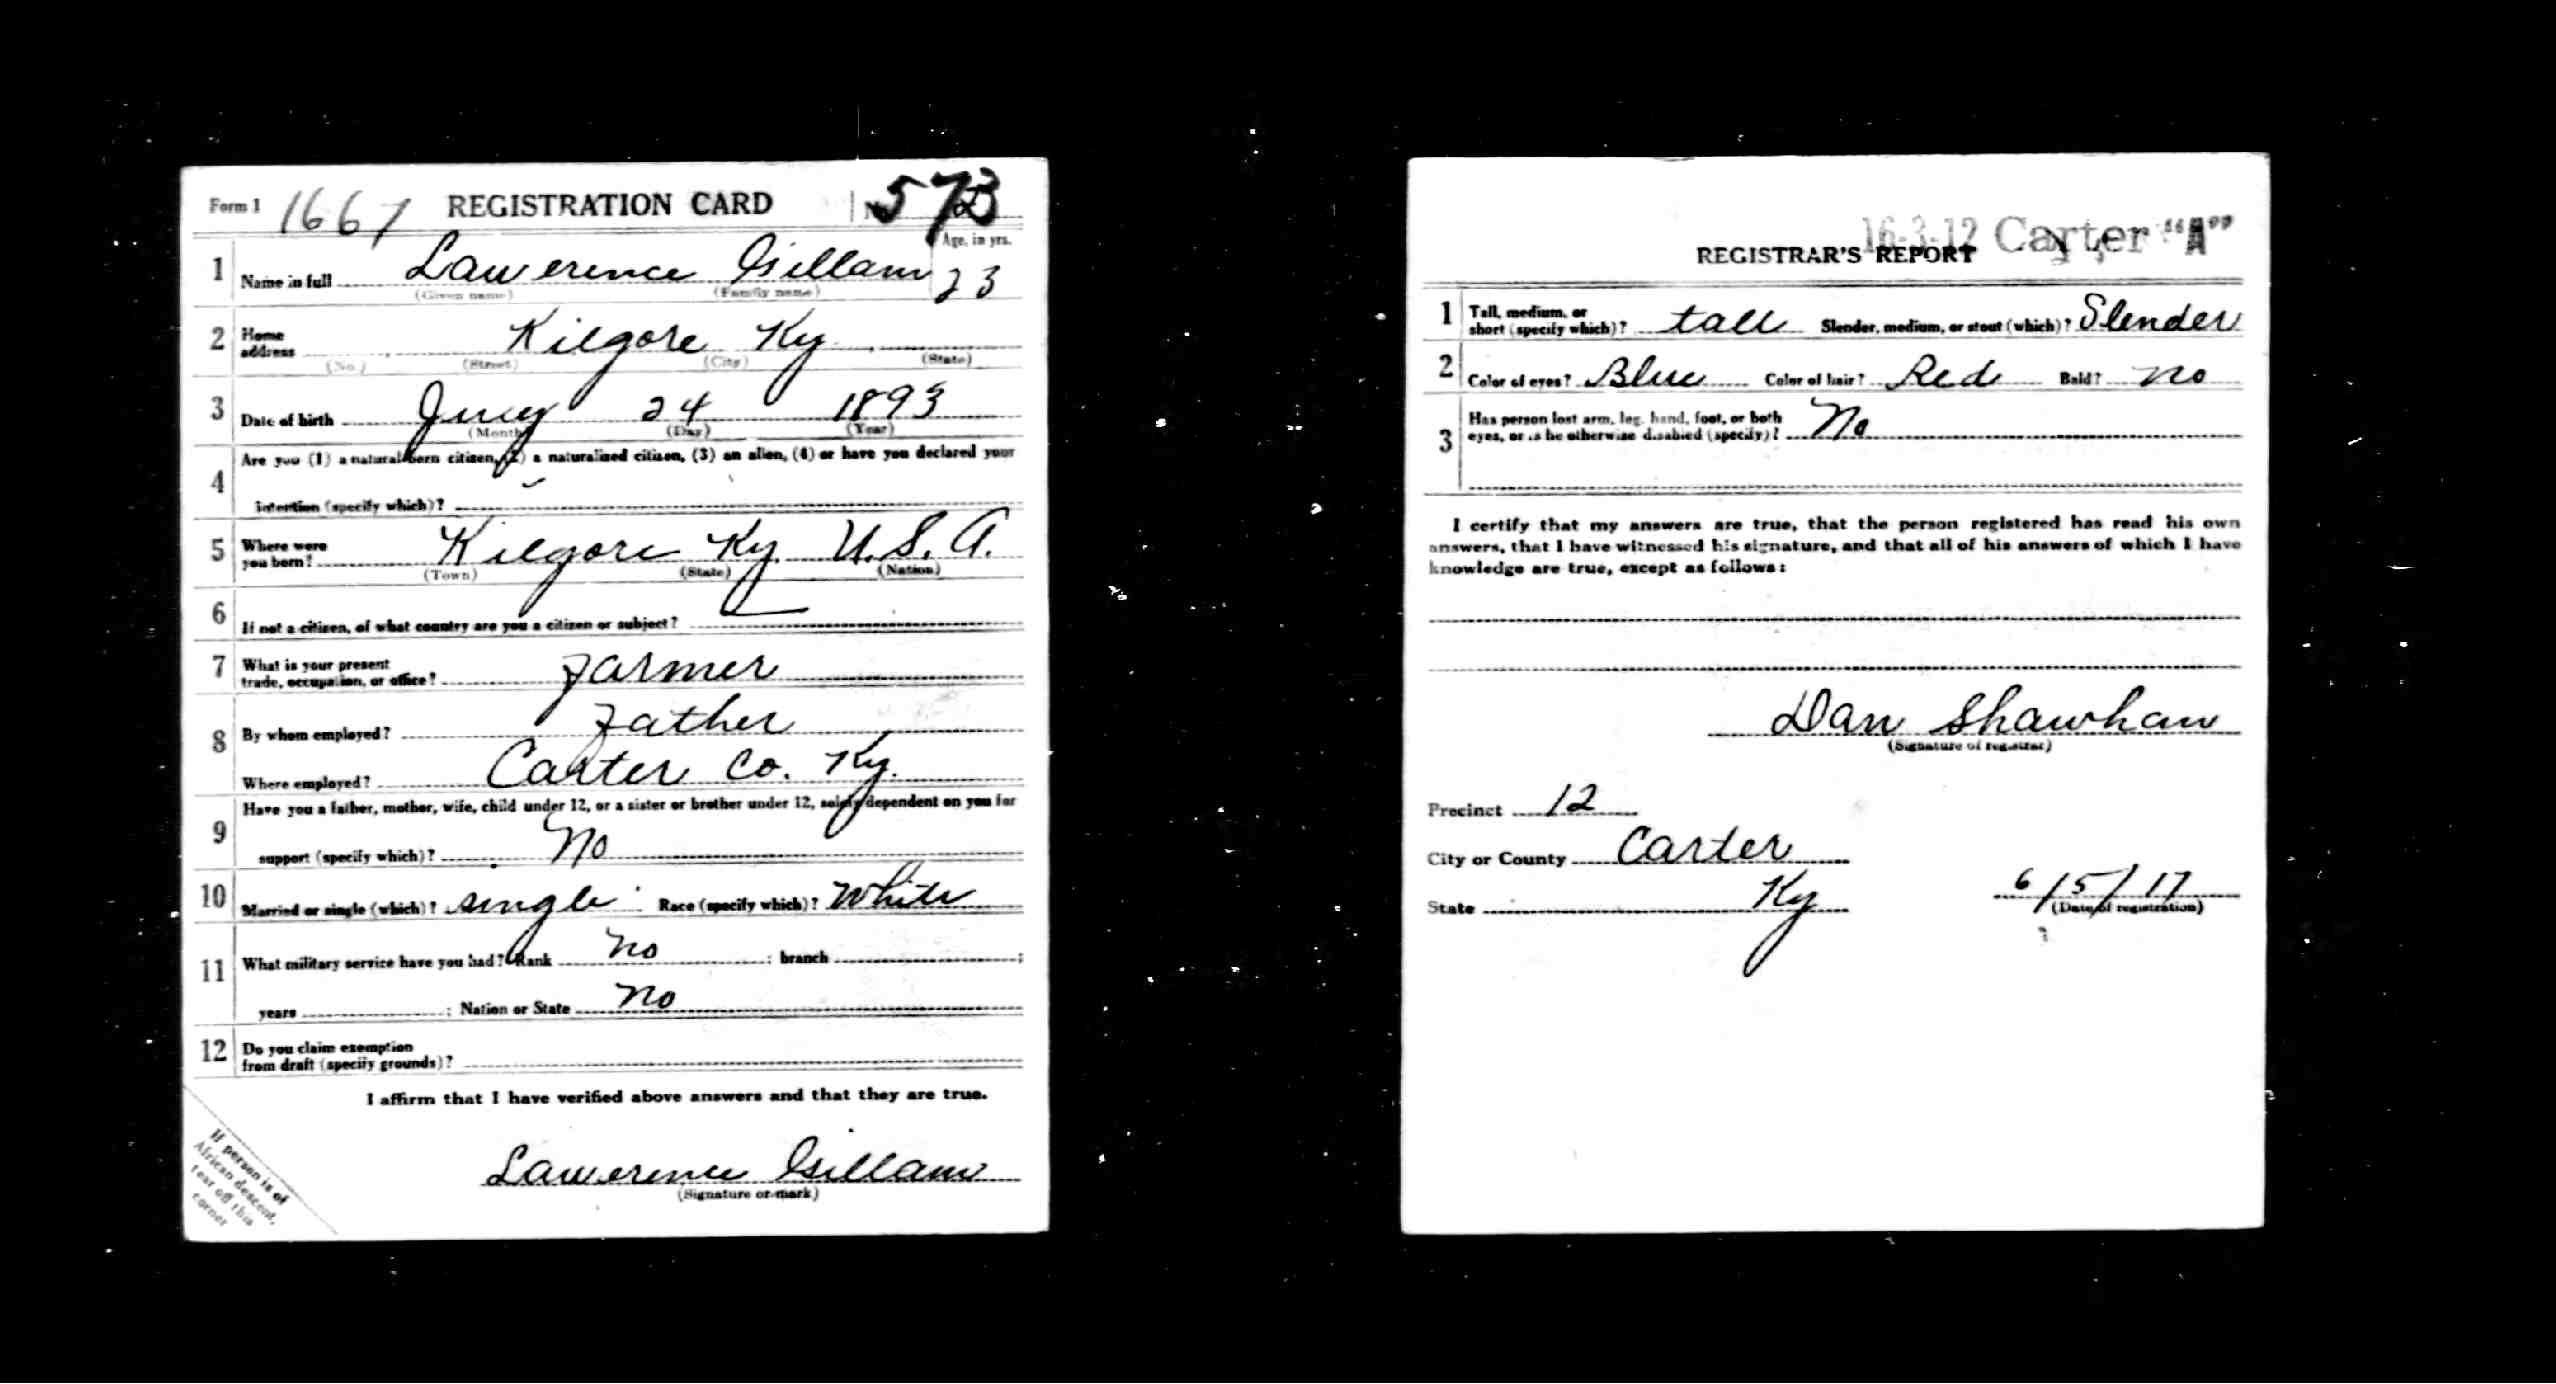 Form 1 1667 REGISTRATION CARD No. 573
Age, in yrs.
1 Name in full Lawerence Gillam 23
(Given name) (Family name)
2 Home address Kilgore Ky
(No.) (Street) (City) (State)
3 Date of birth July 24 1893
(Month) (Day) (Year)
4 Are you (1) a natural born citizen, (2) a naturalized citizen, (3) an alien, (4) or have you declared your
intention (specify which)?
5 Where were you born? Kilgore Ky. U.S.A.
(Town) (State) (Nation)
6 If not a citizen, of what country are you a citizen or subject?
7 What is your present trade, occupation, or office? Farmer
8 By whom employed? Father
Where employed? Carter Co. Ky.
9 Have you a father, mother, wife, child under 12, or a sister or brother under 12, solely dependent on you for
support (specify which)? No
10 Married or single (which)? Single Race (specify which)? White
11 What military service have you had? Rank no ; branch ;
years ; Nation or State no
12 Do you claim exemption from draft (specify grounds)?
I affirm that I have verified above answers and that they are true.
Lawerence Gillam
(Signature or mark)
If person is of
African descent,
tear off this
corner
16-3-12 Carter "A"
REGISTRAR'S REPORT
1 Tall, medium, or short (specify which)? tall Slender, medium, or stout (which)? Slender
2 Color of eyes? Blue Color of hair? Red Bald? no
3 Has person lost arm, leg, hand, foot, or both
eyes, or is he otherwise disabled (specify)? No
I certify that my answers are true, that the person registered has read his own
answers, that I have witnessed his signature, and that all of his answers of which I have
knowledge are true, except as follows:
Dan Shawhan
(Signature of registrar)
Precinct 12
City or County Carter
State Ky 6/5/17
(Date of registration)